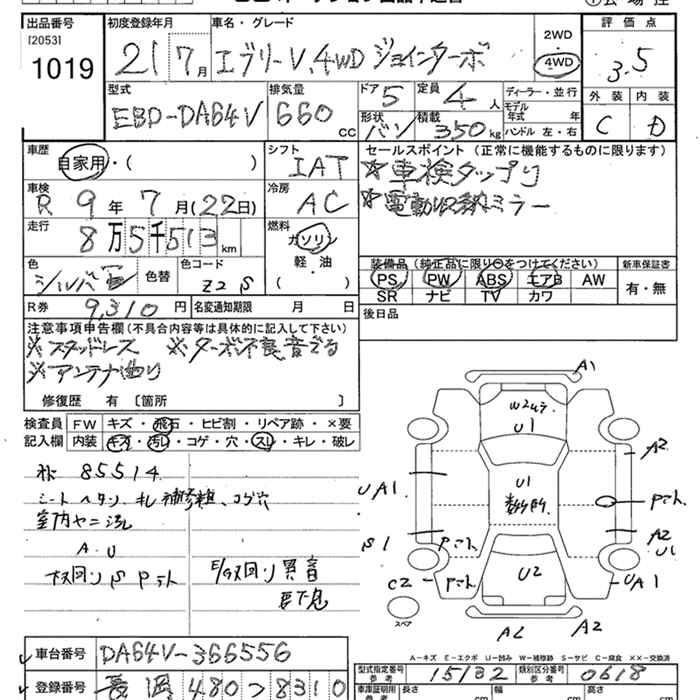 出品番号
[2053]
1019
初度登録年月
21 7月
車名・グレード
エブリーV.4WD ジョインターボ
2WD
4WD
評価点
3.5
外装 内装
C D
型式
EBD-DA64V
排気量
660 cc
ドア
5
定員
4人
形状
バン
積載
350kg
ディーラー・並行
モデル年式 年
ハンドル 左・右
車歴
自家用・( )
シフト
IAT
セールスポイント (正常に機能するものに限ります)
☆車検タップリ
☆電動収納ミラー
車検
R 9年 7月(22日)
冷房
AC
走行
8万5千513km
燃料
ガソリン
軽・油
( )
色
シルバー
色替
色コード
Z2S
装備品 (純正品に限り○をつけてください)
PS PW ABS エアB AW
SR ナビ TV カワ
新車保証書
有・無
R券 9,310円
名変通知期限 月 日
後日品
注意事項申告欄(不具合内容等は具体的に記入して下さい)
※スタッドレス ※ターボ不良、音でる
※アンテナ曲り
修復歴 有 〔箇所 〕
検査員記入欄
FW キズ・飛石・ヒビ割・リペア跡・×要
内装 キズ・汚レ・コゲ・穴・スレ・キレ・破レ
85514
シートヘタリ、キレ補修粗、コゲ穴
室内ヤニ汚レ
A.U
下回りSPテスト
E/G下回り異音
要下見
A1
W2
U1
A2
UA1
U1
Pテスト
S1
Pテスト
A2
U1
C2
Pテスト
U2
UA1
スペア
A2
A2
A-キズ E-エクボ U-凹み W-補修跡 S-サビ C-腐食 XX-交換済
車台番号
DA64V-366556
型式指定番号
参考
15132
類別区分番号
参考
0618
登録番号
長岡 480つ8310
車庫証明用
参考
長さ
幅
高さ